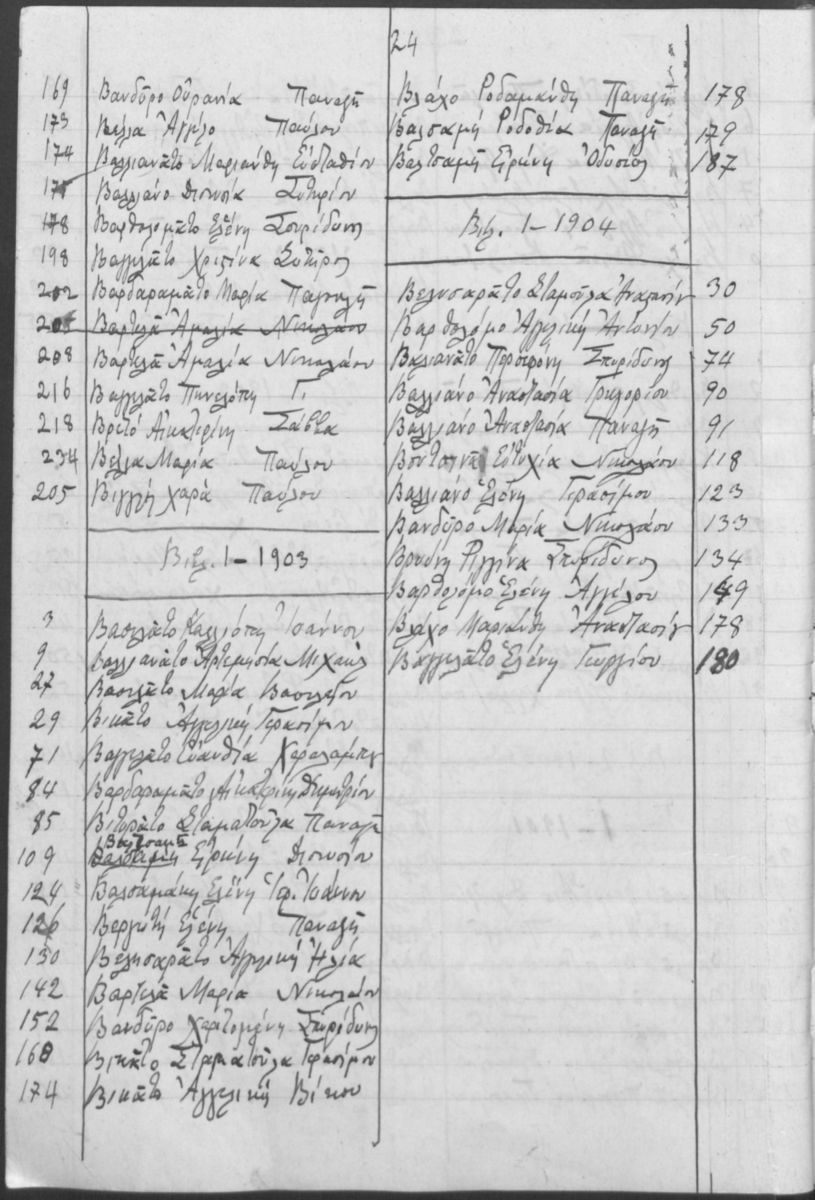 24
169 Βανδῦρο Οὐρανία Παναγῆ
173 Βέλλα Ἀγγέλο Παύλου
174 Βαλλιανᾶτο Μαριάνθη Εὐσταθίου
Βαλλιάνο Διονυσία Σωτηρίου
178 Βαρθολομᾶτο Ἑλένη Σπυρίδωνος
198 Βαγγελᾶτο Χριστίνα Σωτῆρος
202 Βαρδαραμᾶτο Μαρία Παναγῆ
Βαρτελᾶ Ἀμαλία Νικολάου
208 Βαρτελᾶ Ἀμαλία Νικολάου
216 Βαγγελᾶτο Πηνελόπη Γ.
218 Βρετό Αἰκατερίνη Σάββα
234 Βέλλα Μαρία Παύλου
205 Βιγγρή Χαρά Παύλου
Βιβ. 1 – 1903
3 Βασιλᾶτο Καλλιόπη Ἰωάννου
9 Βαλλιανᾶτο Ἀρτεμισία Μιχαήλ
27 Βασιλᾶτο Μαρία Βασιλείου
29 Βικᾶτο Ἀγγελική Γερασίμου
71 Βαγγελᾶτο Εὐανθία Χαραλάμπου
84 Βαρδαραμᾶτο Αἰκατερίνη Δημητρίου
85 Βιτωρᾶτο Σταματοῦλα Παναγῆ
109 Βαλτσαμῆ Εἰρήνη Διονυσίου
124 Βαλσαμάκη Ἑλένη Ἰωάννου
126 Βεργωτή Ἑλένη Παναγῆ
130 Βελησαρᾶτο Ἀγγελική Ἠλία
142 Βαρτελᾶ Μαρία Νικολάου
152 Βανδῦρο Χαριτωμένη Σπυρίδωνος
168 Βικᾶτο Σταματοῦλα Γερασίμου
174 Βικᾶτο Ἀγγελική Βίκου
Βλάχο Ροδαμάνθη Παναγῆ 178
Βαλσαμῆ Ροδοθέα Παναγῆ 179
Βαλτσαμῆ Εἰρήνη Ὀδυσέως 187
Βιβ. 1 – 1904
Βελυσαρᾶτο Σταμούλα Ἀναστασίου 30
Βαρθολόμο Ἀγγελική Ἀντωνίου 50
Βαλιανᾶτο Περσεφόνη Σπυρίδωνος 74
Βαλλιάνο Ἀναστασία Γρηγορίου 90
Βαλλιάνο Ἀναστασία Παναγῆ 91
Βουτσινᾶ Εὐτυχία Νικολάου 118
Βαλλιάνο Ἑλένη Γερασίμου 123
Βανδῦρο Μαρία Νικολάου 133
Βρυώνη Ρεγγίνα Σπυρίδωνος 134
Βαρθολόμο Ἑλένη Ἀγγέλου 149
Βλάχο Μαριάνθη Ἀναστασίου 178
Βαγγελᾶτο Ἑλένη Γεωργίου 180